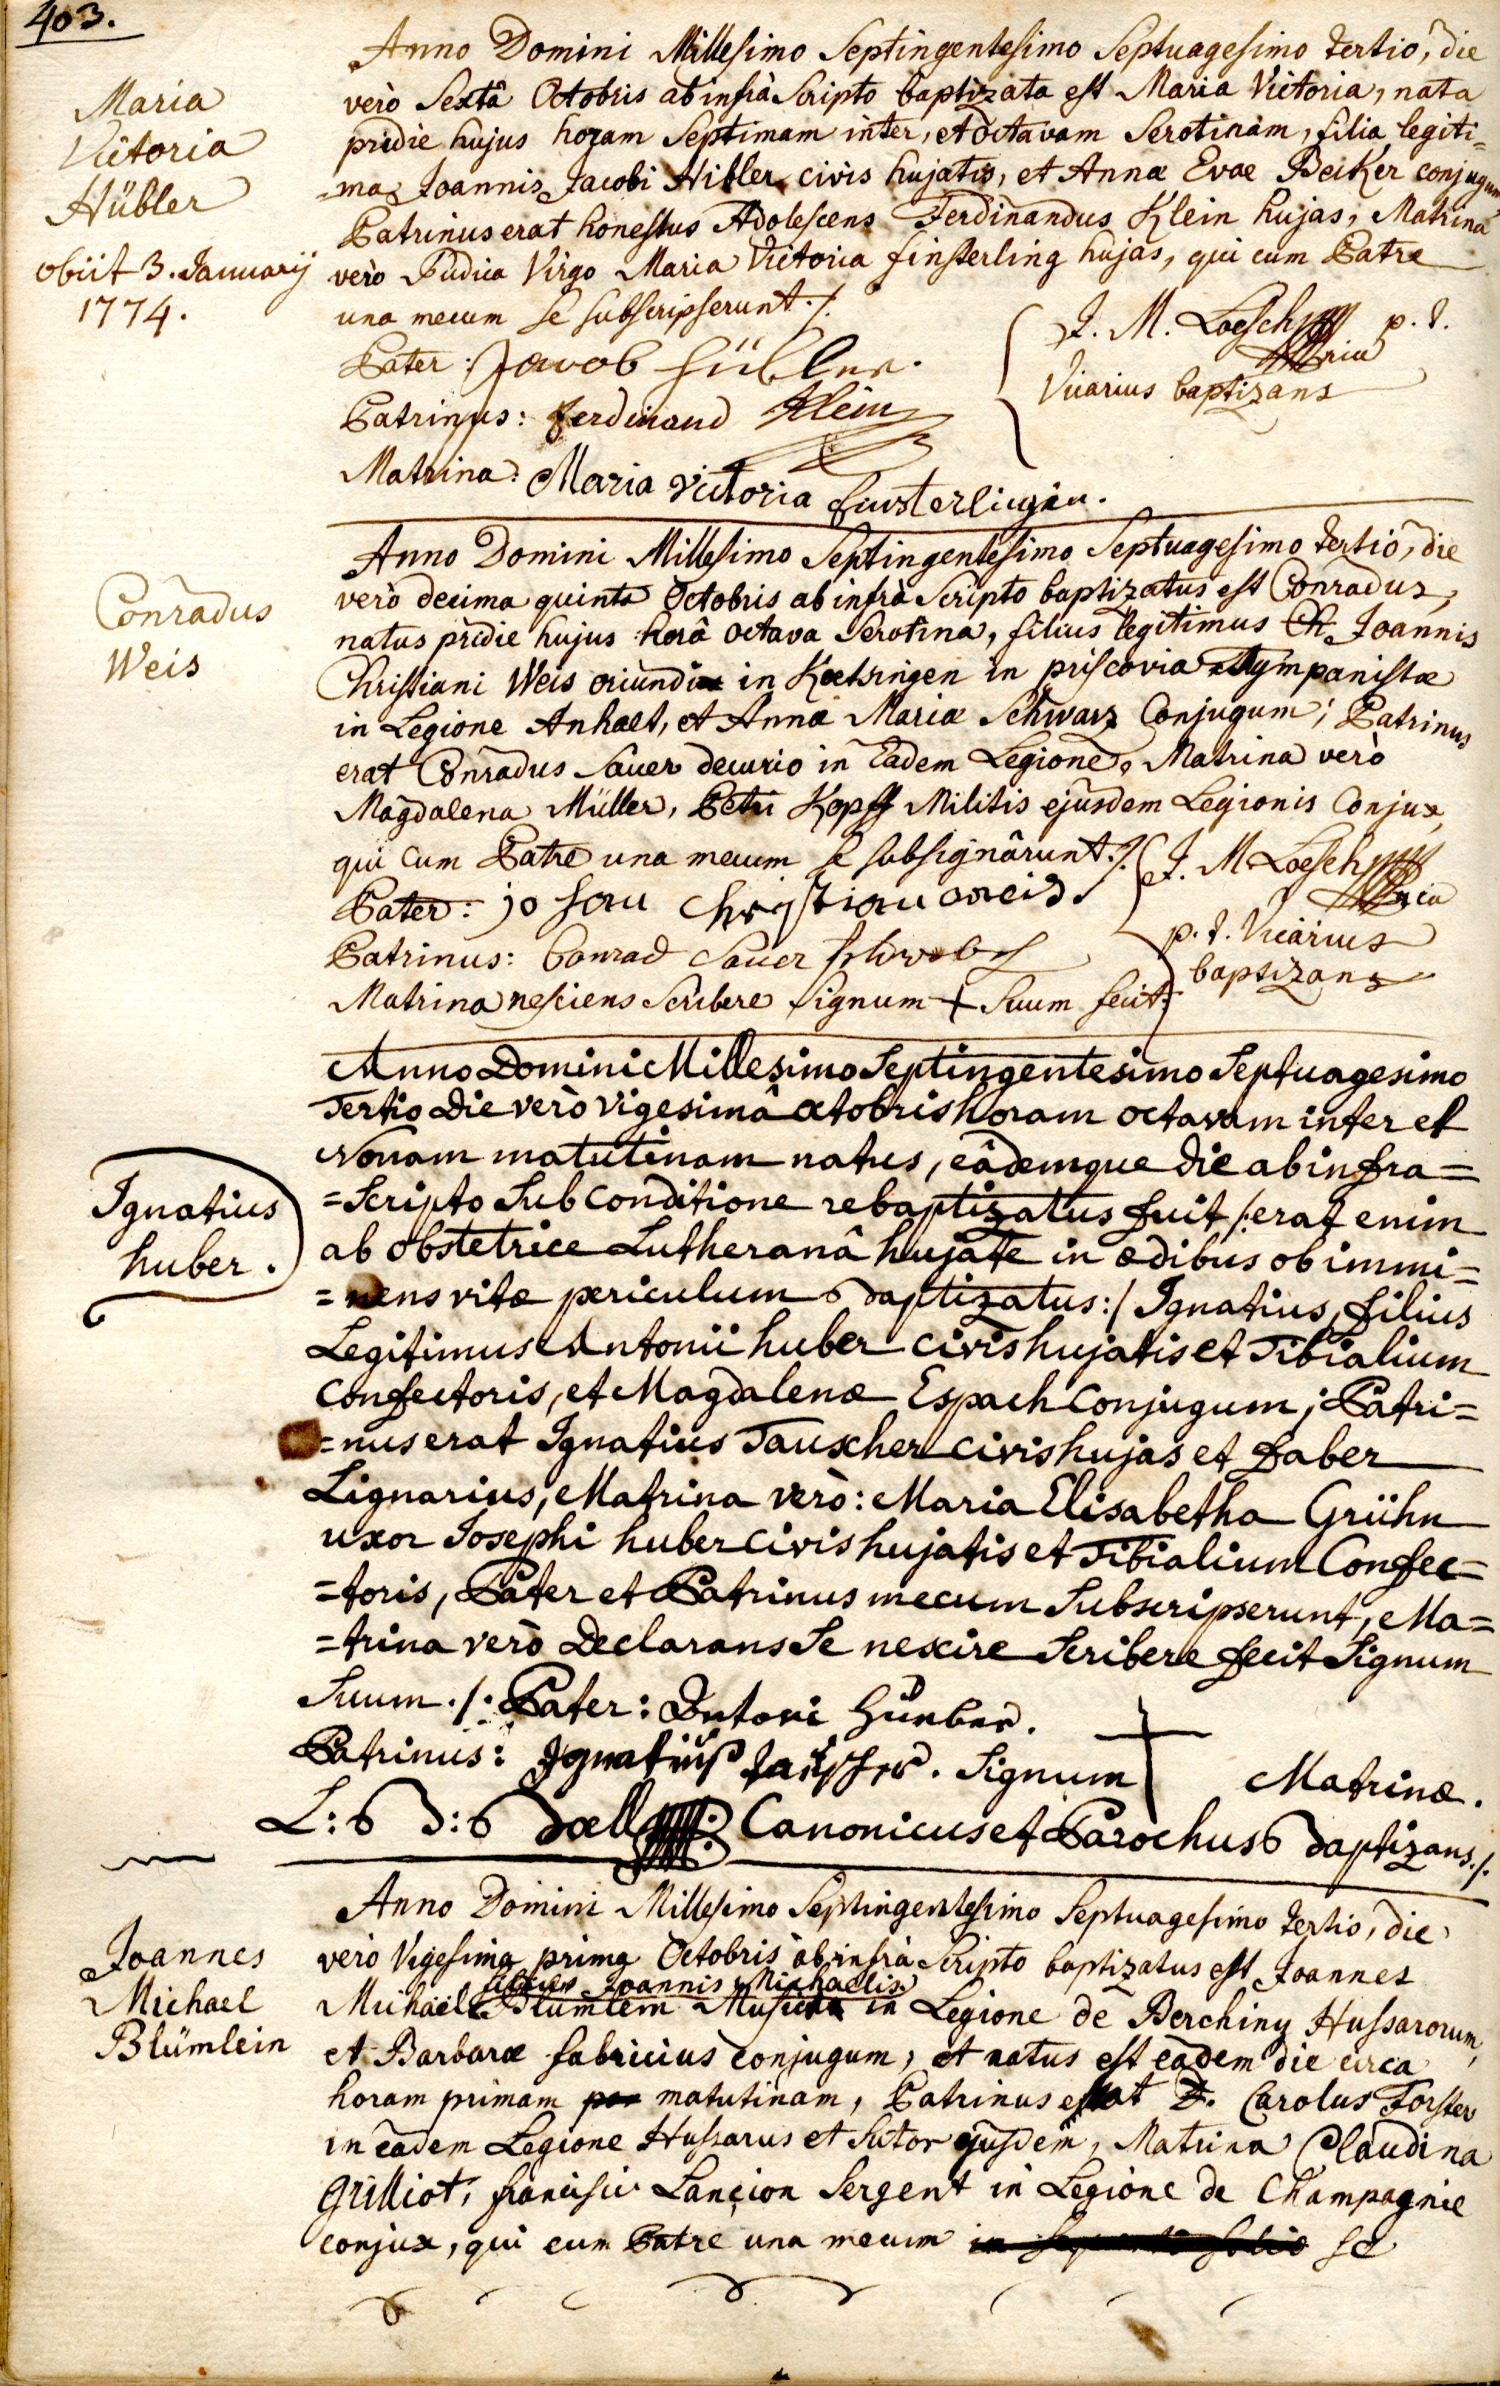 403.
Maria
Victoria
Hübler
obiit 3. Januarij
1774.
Anno Domini Millesimo Septingentesimo Septuagesimo tertio, die
verò Sextâ Octobris ab infrà Scripto baptizata est Maria Victoria, nata
pridie hujus horam Septimam inter, et octavam Serotinam, filia legiti=
=ma Joannis Jacobi Hibler civis hujatis, et Annæ Evae Beiker conjugum
Patrinus erat honestus Adolescens Ferdinandus Klein hujas, Matrina
verò Pudica Virgo Maria Victoria finsterling hujas, qui cum Patre
una mecum se subscripserunt ./.
Pater: Jacob Hübler.
Patrinus: Ferdinand Klein
Matrina: Maria victoria finsterlingin.
J. M. Loesch p. t.
Vicarius baptizans
Conradus
Weis
Anno Domini Millesimo Septingentesimo Septuagesimo tertio, die
verò decima quinta Octobris ab infrà Scripto baptizatus est Conradus,
natus pridie hujus horâ octava Serotina, filius legitimus Ch. Joannis
Christiani Weis oriundi in Koetsingen in priscovia tympanistæ
in Legione Anhalt, et Annæ Mariæ Schwarz Conjugum; Patrinus
erat Conradus Sauer decurio in Eadem Legione, Matrina verò
Magdalena Müller, Petri Kopff Militis ejusdem Legionis Conjux,
qui cum Patre una mecum se subsignârunt ./.
Pater: johan christian weis.
Patrinus: Conrad Sauer
Matrina nesciens Scribere Signum + Suum fecit.
J. M Loesch
p. t. Vicarius
baptizans
Ignatius
huber.
Anno Domini Millesimo Septingentesimo Septuagesimo
Tertio Die verò vigesimâ octobris horam octavam inter et
Nonam matutinam natus, eâdemque die ab infra=
=Scripto Sub conditione rebaptizatus fuit /:erat enim
ab obstetrice Lutheranâ hujate in ædibus ob immi=
=nens vitæ periculum baptizatus:/ Ignatius, filius
Legitimus Antonii huber civis hujatis et Tibialium
confectoris, et Magdalenæ Espach Conjugum; Patri=
=nus erat Ignatius Tauscher civis hujas et faber
Lignarius, Matrina verò: Maria Elisabetha Grühn
uxor Josephi huber civis hujatis et Tibialium Confec=
=toris, Pater et Patrinus mecum Subscripserunt, Ma=
=trina verò Declarans Se nescire Scribere fecit Signum
Suum ./. Pater: Antoni Hueber.
Patrinus: Ignatius tauscher. Signum + Matrinæ.
L: B: Boell Canonicus et Parochus baptizans ./.
Joannes
Michael
Blümlein
Anno Domini Millesimo Septingentesimo Septuagesimo tertio, die
verò Vigesima prima Octobris ab infrà Scripto baptizatus est Joannes
filius Joannis Michaelis
Michael Blumlein Musici in Legione de Berchiny Hussarorum,
et Barbaræ fabricius conjugum, et natus est eadem die circa
horam primam matutinam, Patrinus erat D. Carolus Forster
in eadem Legione Hussarus et Sutor ejusdem, Matrina Claudina
Grilliot, francisci Lancion Sergent in Legione de Champagnie
conjux, qui cum Patre una mecum in sequenti folio se